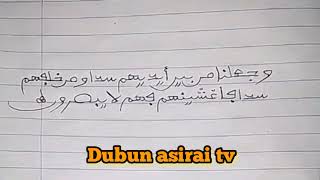 وجعلنا من بين أيديهم سدا ومن خلفهم
سدا فأغشينهم فهم لا يبصرون
Dubun asirai tv